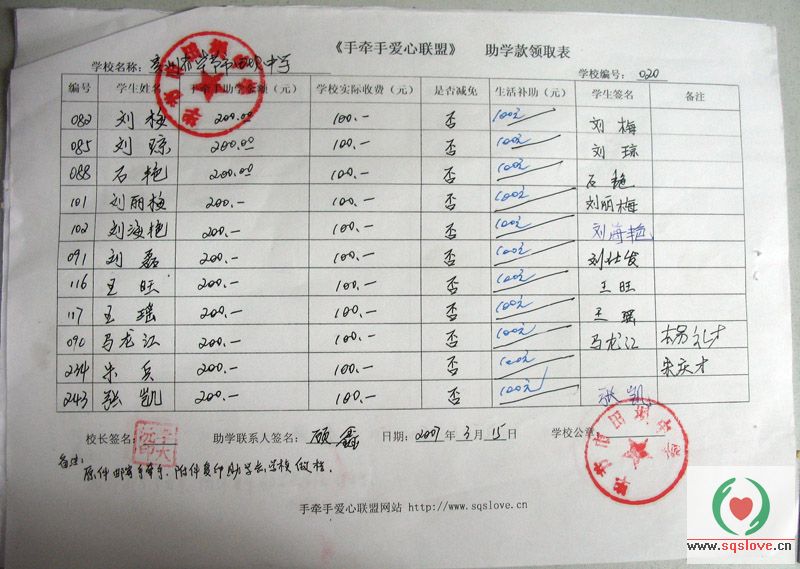 《手牵手爱心联盟》 助学款领取表
学校名称: 中学 学校编号: 020
编号 学生姓名 手牵手助学金额（元） 学校实际收费（元） 是否减免 生活补助（元） 学生签名 备注
082 刘梅 200.00 100.— 否 100元 刘梅
085 刘琼 200.00 100.— 否 100元 刘琼
088 石艳 200.00 100.— 否 100元 石艳
101 刘丽梅 200.— 100.— 否 100元 刘丽梅
102 刘海艳 200.— 100.— 否 100元 刘海艳
091 刘磊 200.— 100.— 否 100元
116 王旺 200.— 100.— 否 100元 王旺
117 王瑶 200.— 100.— 否 100元 王瑶
090 马龙江 200.— 100.— 否 100元 马龙江
234 宋兵 200.— 100.— 否 100元 宋庆才
243 张凯 200.— 100.— 否 100元 张凯
校长签名: 助学联系人签名: 顾鑫 日期: 2007 年 3 月 15 日 学校公章:
备注:
原件邮寄手牵手,附件复印助学会学校做档.
手牵手爱心联盟网站 http://www.sqslove.cn
www.sqslove.cn